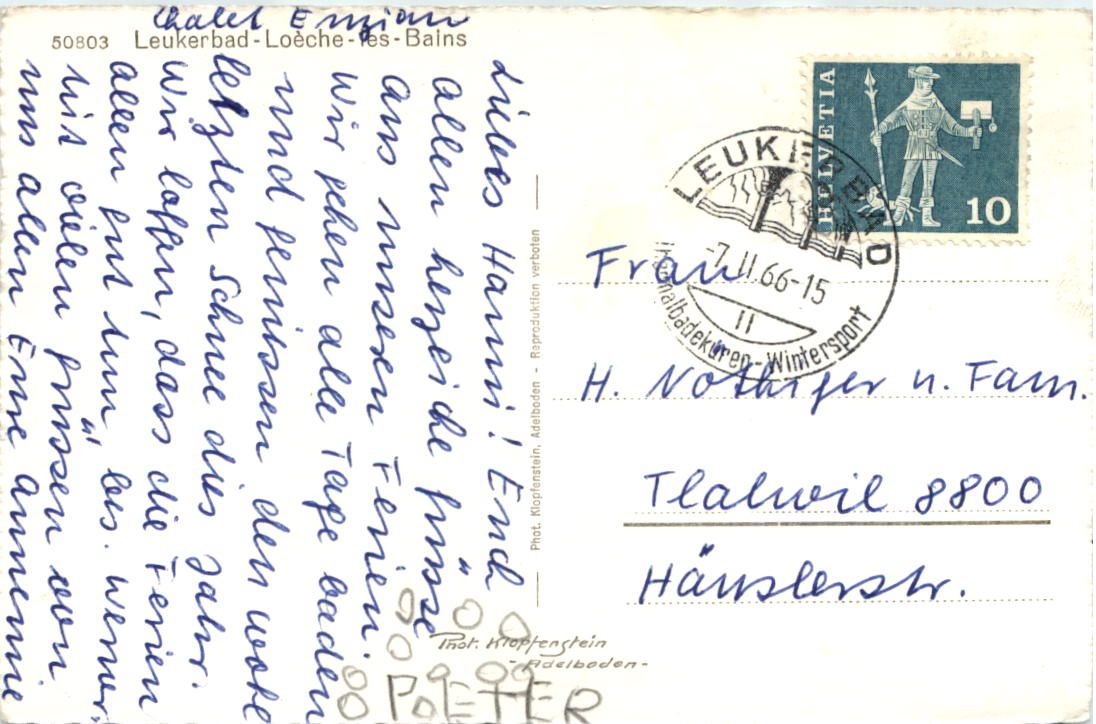 Chalet Enzian
50803 Leukerbad-Loèche-les-Bains
Liebes Hanni! Euch
allen herzliche Grüsse
aus unseren Ferien.
Wir gehen alle Tage baden
und geniessen den wohl
letzten Schnee dies Jahr.
Wir hoffen, dass die Ferien
allen gut tun, bes. Werner.
Mit vielen Grüssen von
uns allen Eure Annemie
Phot. Klopfenstein, Adelboden - Reproduktion verboten
Phot. Klopfenstein
- Adelboden -
POETTER
HELVETIA
10
LEUKERBAD
-7.II.66-15
II
Thermalbadekuren-Wintersport
Frau
H. Nothiger u. Fam.
Tlalwil 8800
Häuslerstr.